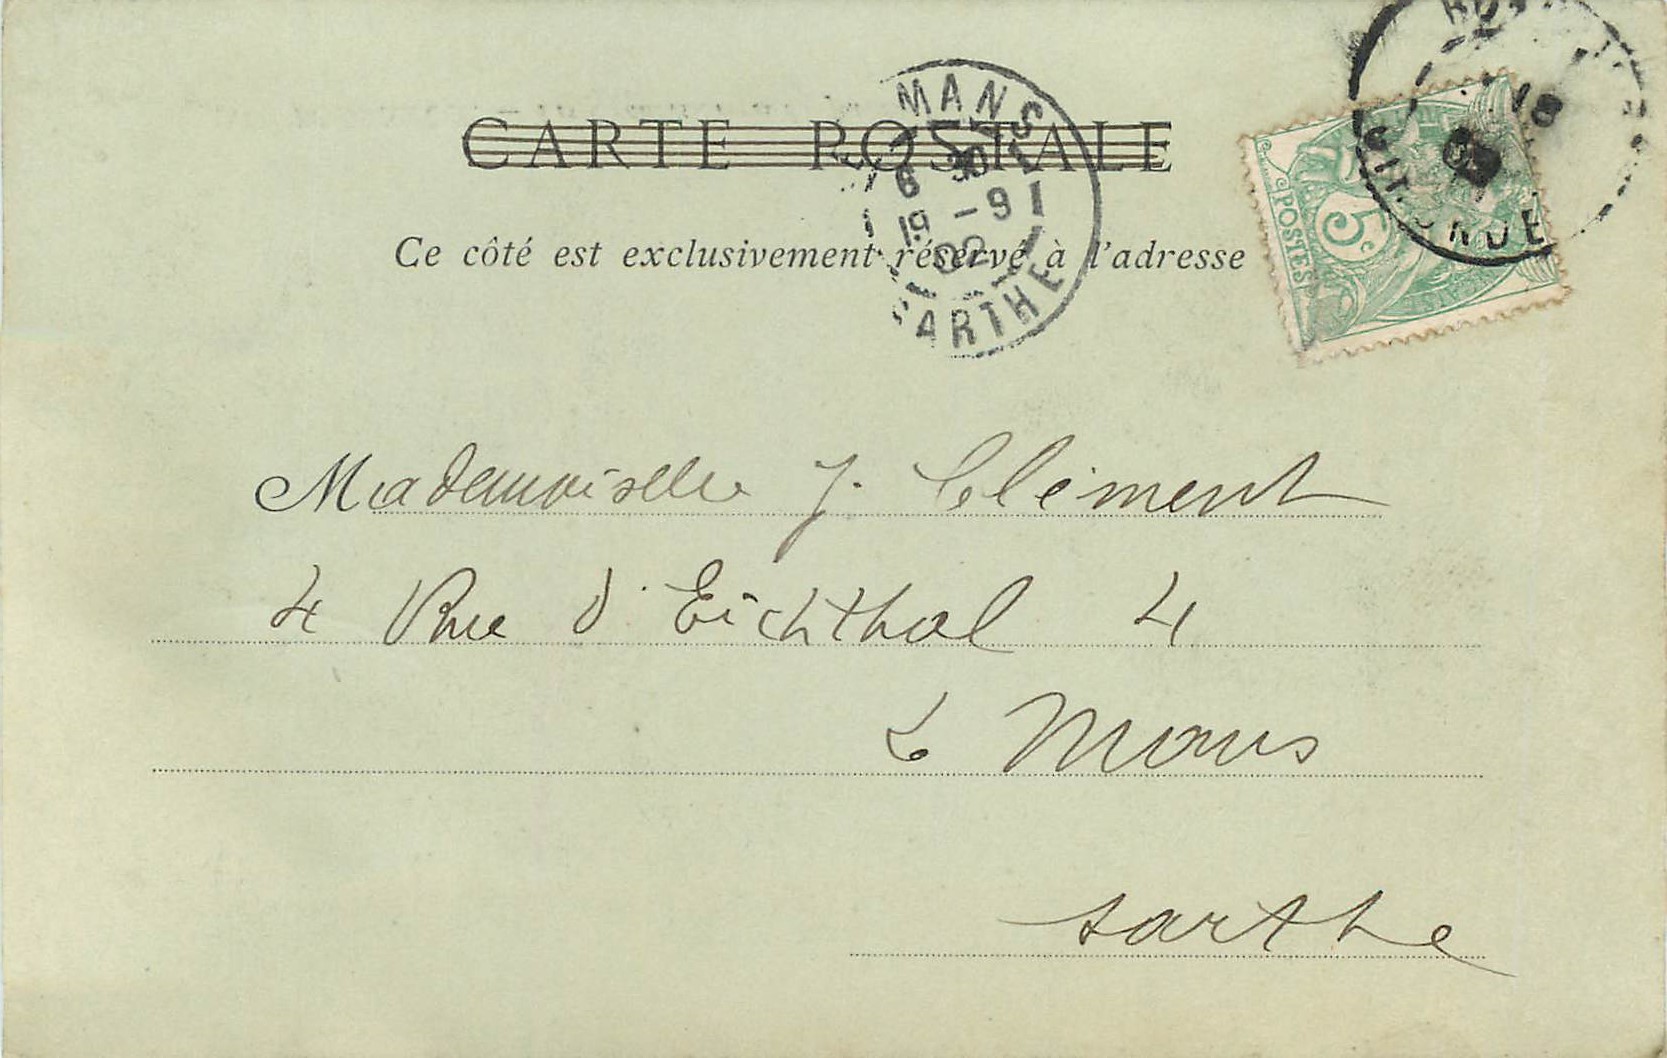 CARTE POSTALE
Ce côté est exclusivement réservé à l'adresse
MANS
6 30
19 -9
02
SARTHE
18
GIRONDE
5c
POSTES
Mademoiselle J. Clément
4 Rue d'Eichthal 4
Le Mans
Sarthe